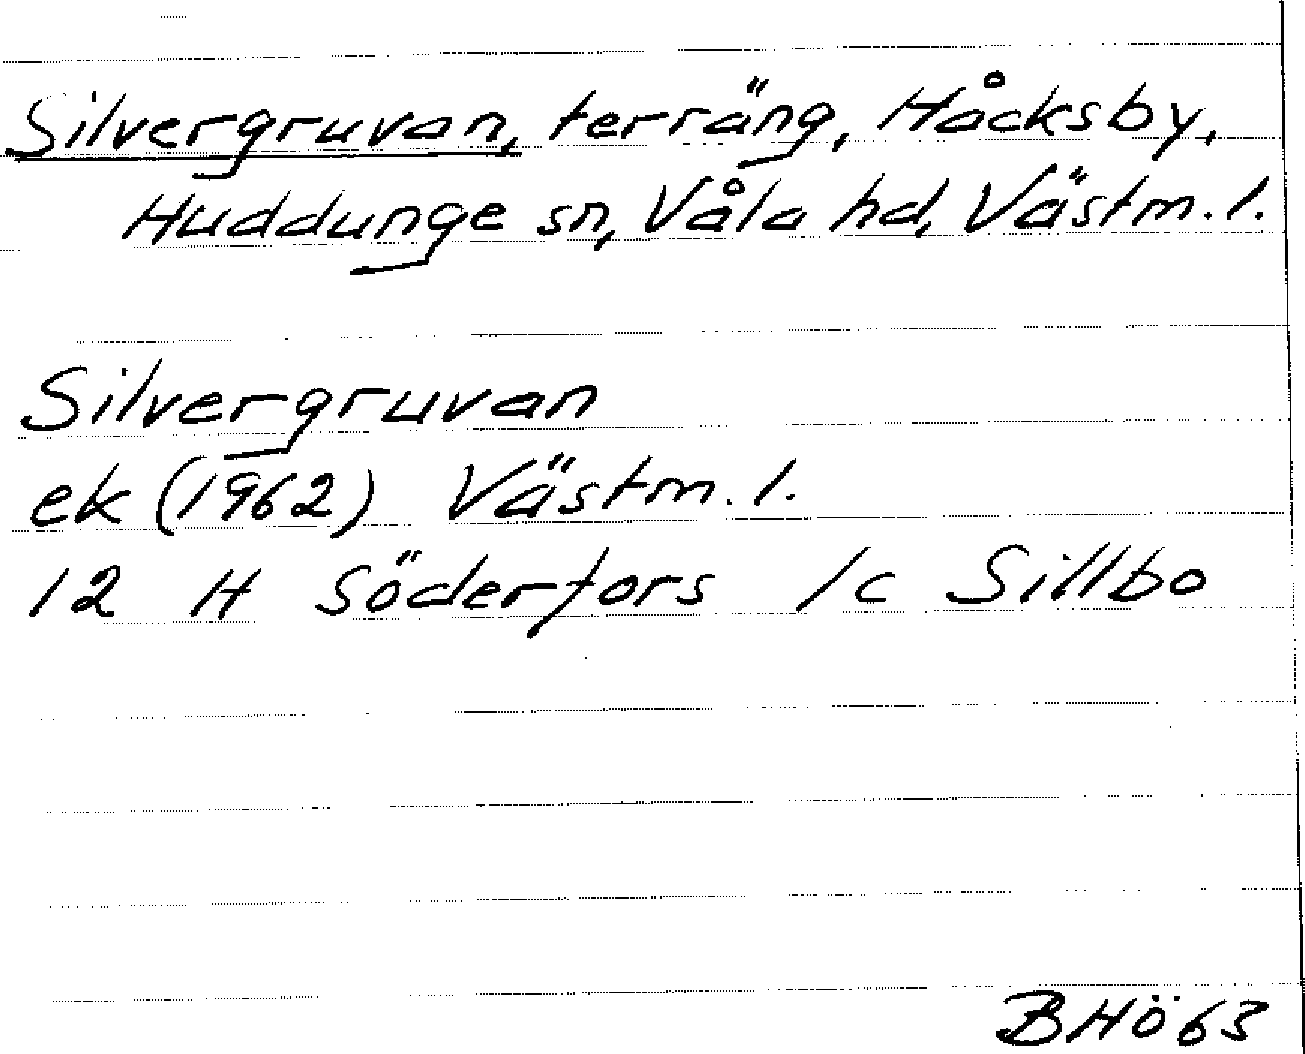 Silvergruvan, terräng, Håcksby,
Huddunge sn, Våla hd, Västm. l.
Silvergruvan
ek (1962) Västm. l.
12 H Söderfors 1c Sillbo
BHÖ63